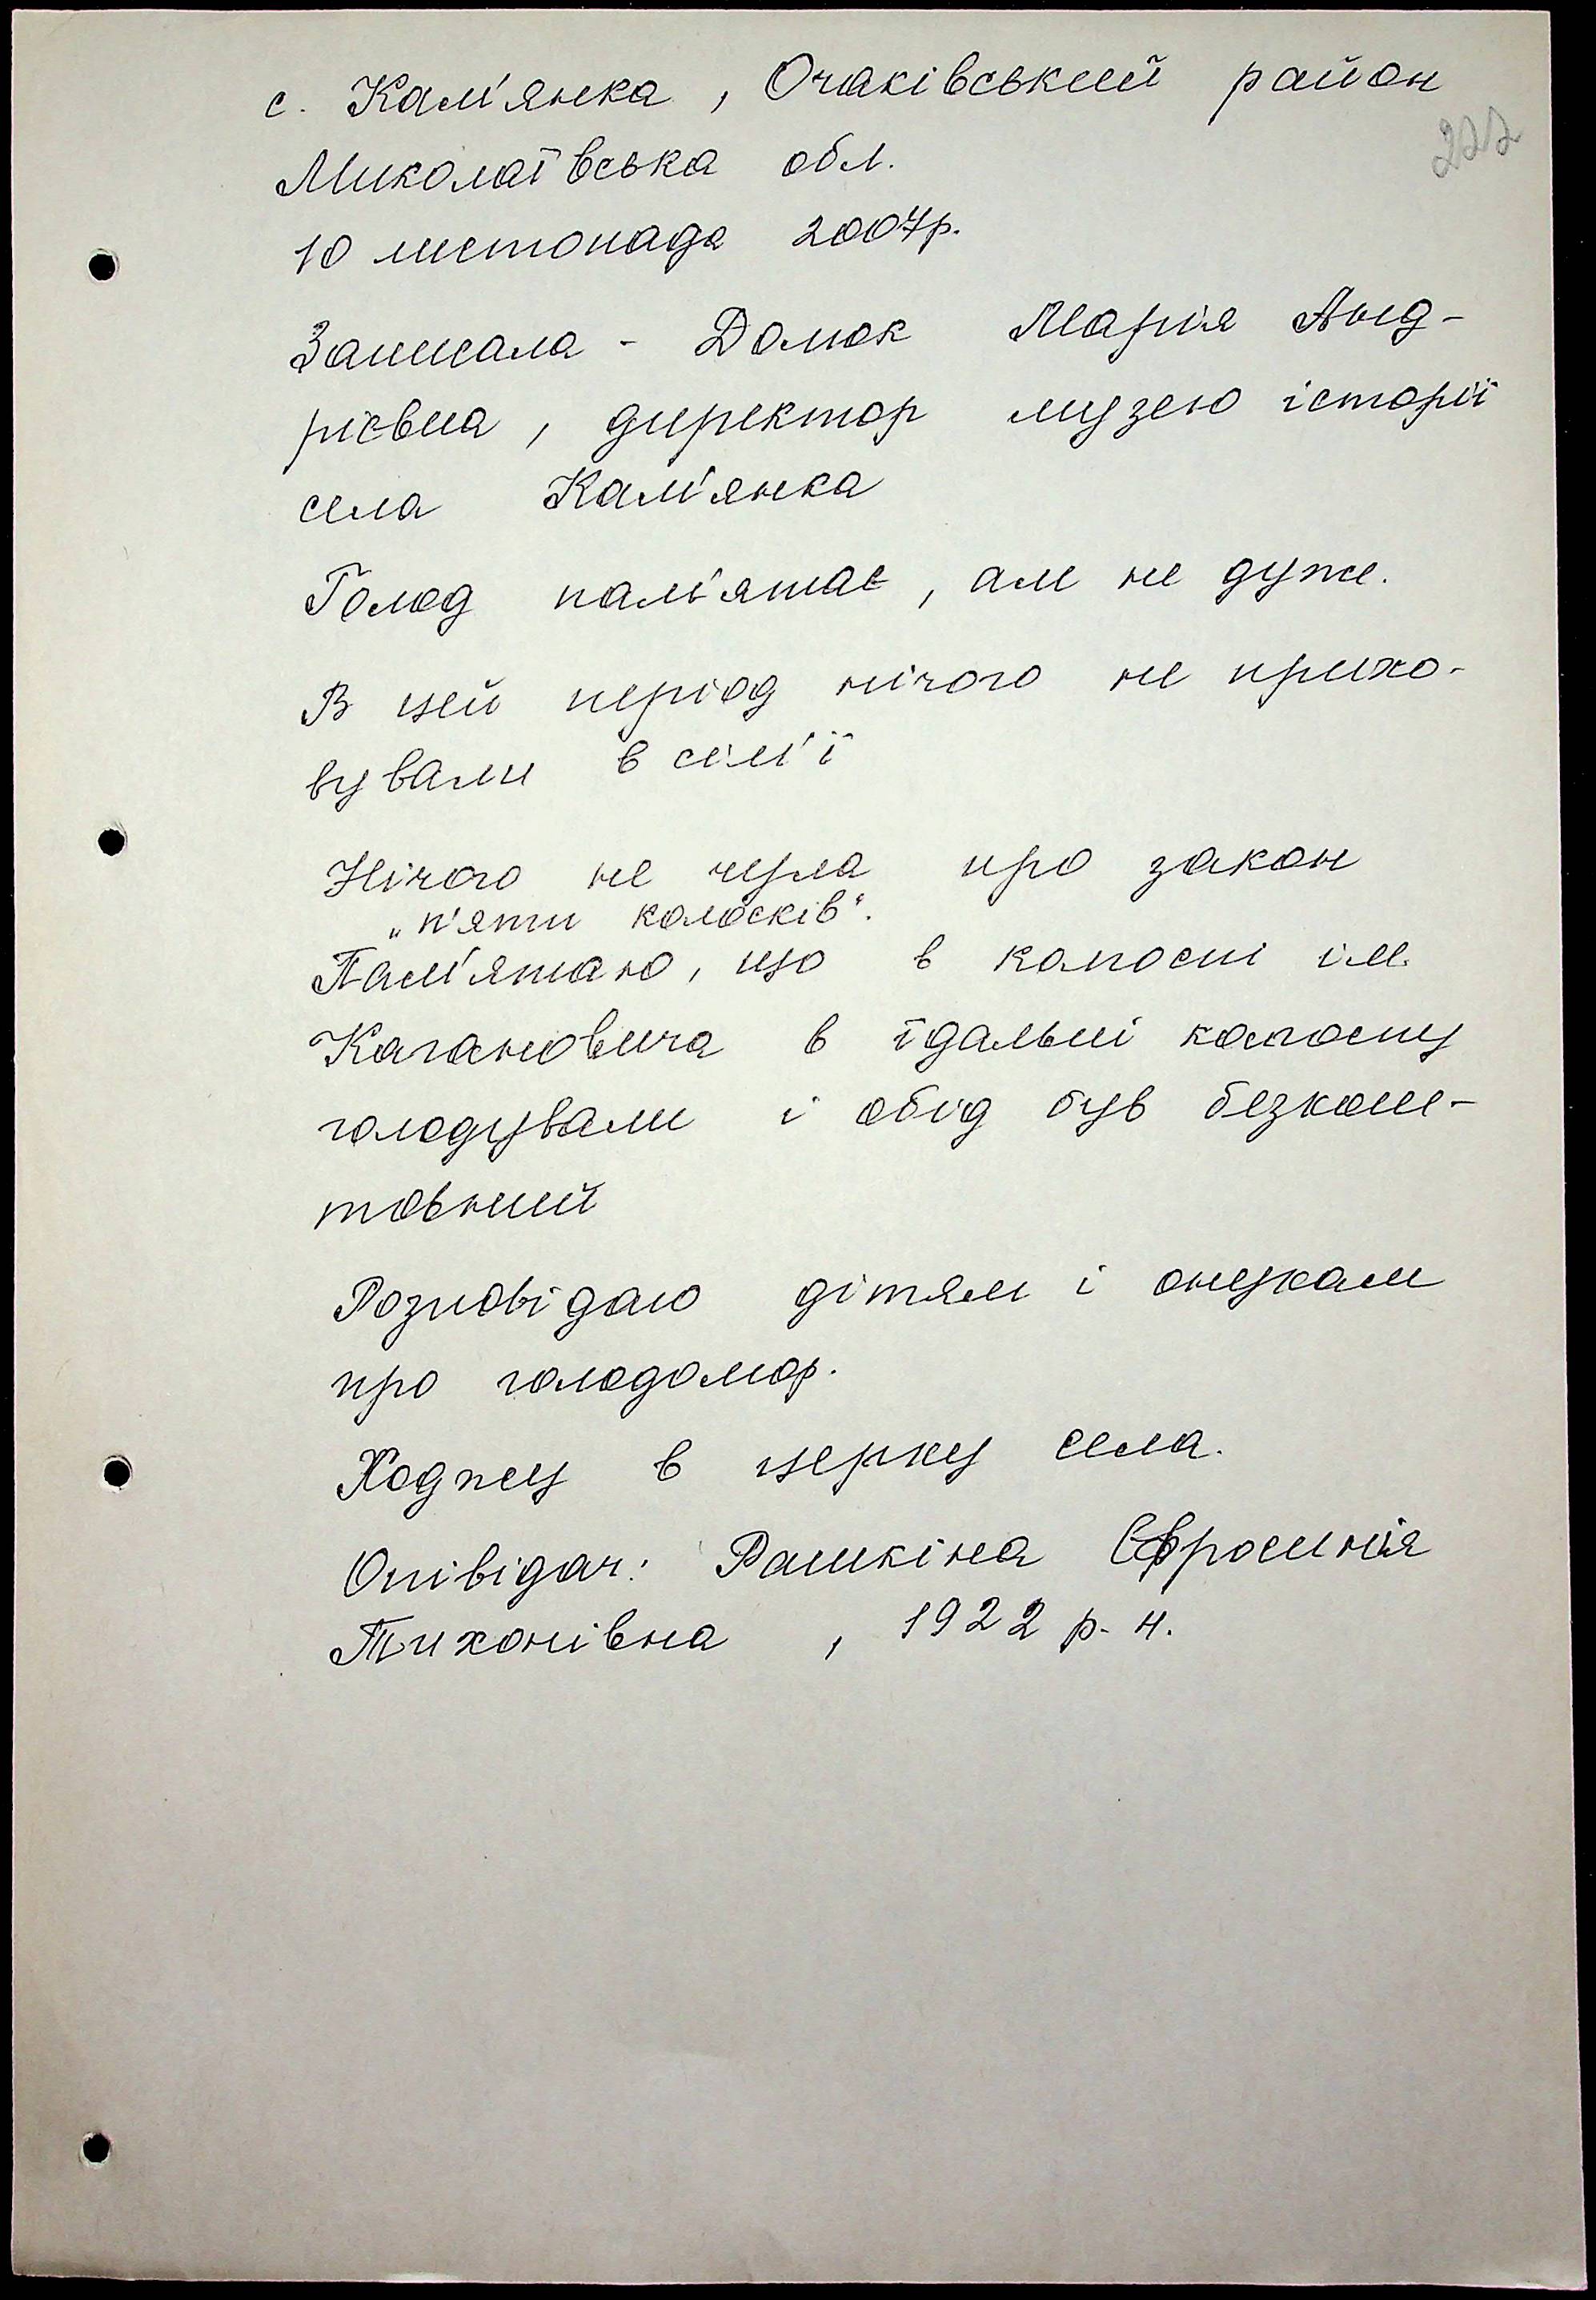 с. Кам'янка, Очаківський район
222
Миколаївська обл.
10 листопада 2007р.
Записала - Домок Марія Анд-
ріївна, директор музею історії
села Кам'янка
Голод пам'ятає, але не дуже.
В цей період нічого не прихо-
вували в сім'ї
Нічого не чула про закон
„п'яти колосків".
Пам'ятаю, що в колгоспі ім.
Кагановича в їдальні колгоспу
голодували і обід був безкош-
товний
Розповідаю дітям і онукам
про голодомор.
Ходжу в церкву села.
Опівідач: Рашкіна Єфросинія
Тихонівна, 1922 р. н.